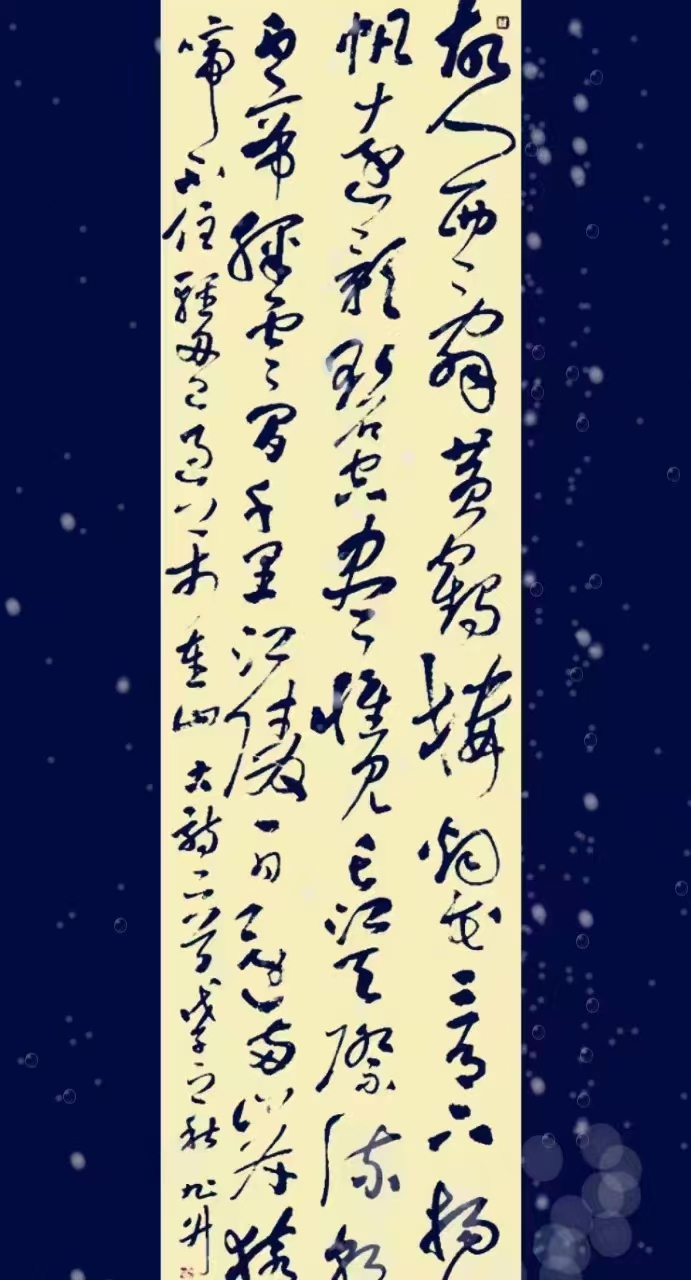 故人西辭黃鶴樓烟花三月下揚
帆遠影碧空盡惟見長江天際流朝
白帝彩雲間千里江陵一日還兩岸猿
啼不住輕舟已過萬重山古詩二首戊子之秋